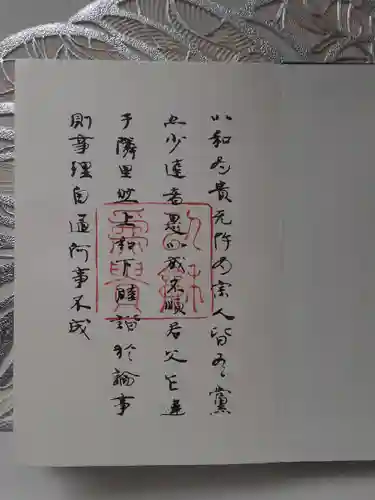 以和為貴无忤為宗人皆有黨
亦少達者是以或不順君父乍違
于隣里然上和下睦諧於論事
則事理自通何事不成